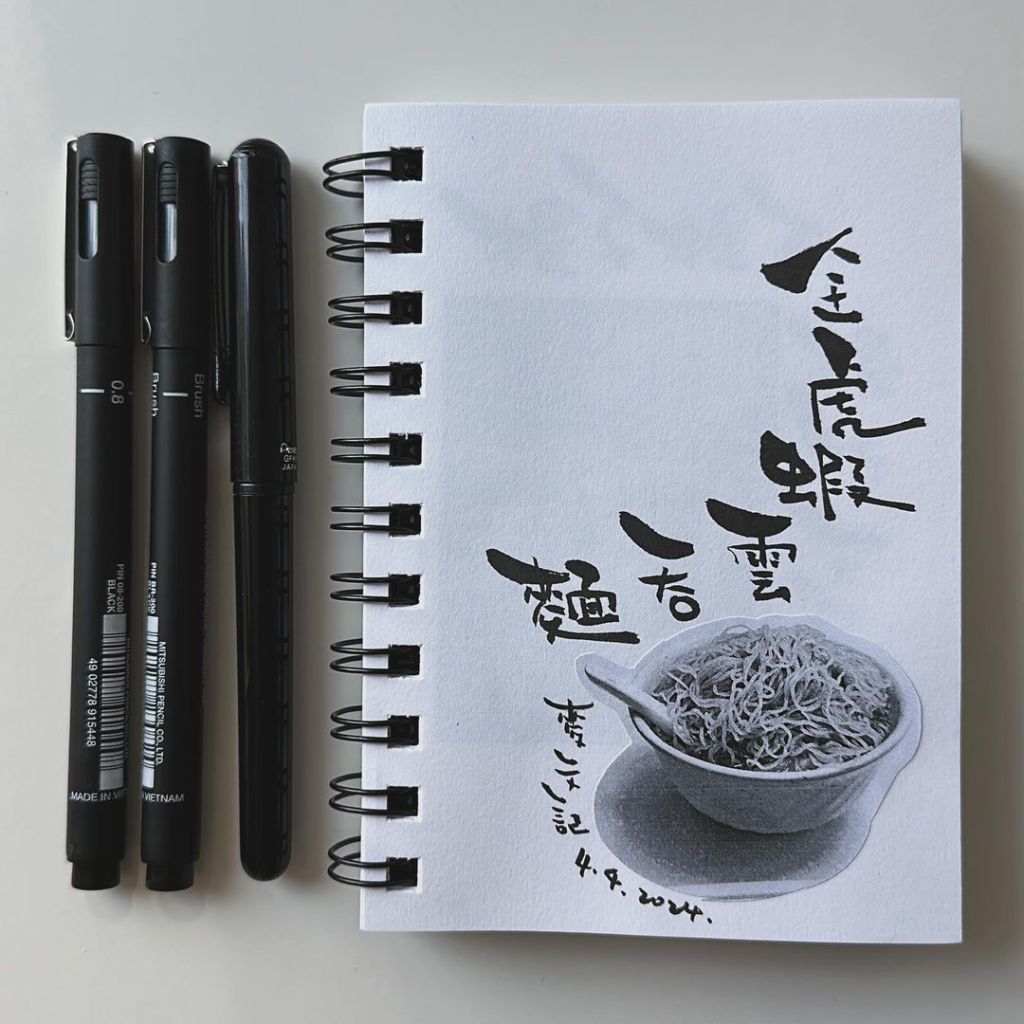 0.8
PIN 08-200
BLACK
49 02778 915448
MADE IN VIE
Brush
Brush
PIN BR-200
MITSUBISHI PENCIL CO., LTD.
VIETNAM
GFK
JAPA
全虎蝦
雲
吞
麵
麥文記
4.4.2024.